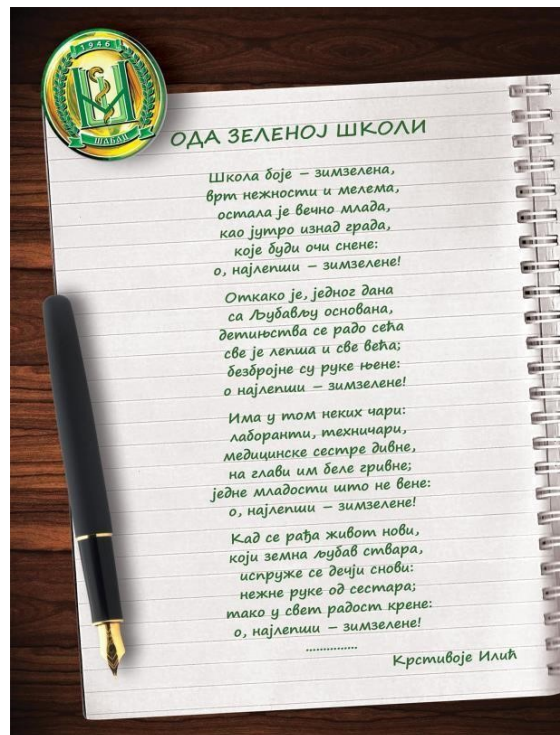 1946
ШАБАЦ
ОДА ЗЕЛЕНОЈ ШКОЛИ
Школа боје – зимзелена,
врт нежности и мелема,
остала је вечно млада,
као јутро изнад града,
које буди очи снене:
о, најлепши – зимзелене!
Откако је, једног дана
са Љубављу основана,
детињства се радо сећа
све је лепша и све већа;
безбројне су руке њене:
о најлепши – зимзелене!
Има у том неких чари:
лаборанти, техничари,
медицинске сестре дивне,
на глави им беле гривне;
једне младости што не вене:
о, најлепши – зимзелене!
Кад се рађа живот нови,
који земна љубав ствара,
испруже се дечји снови:
нежне руке од сестара;
тако у свет радост крене:
о, најлепши – зимзелене!
...............
Крстивоје Илић